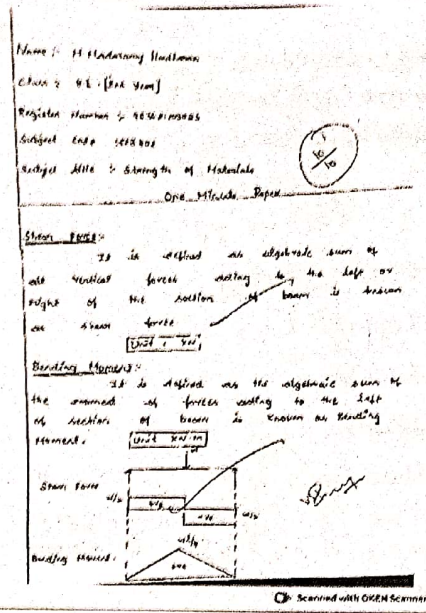 Name :- M
Class :- M.E. [2nd Year]
Register Number :-
Subject Code
Subject title :- Strength of Materials
10/10
One Minute Paper
Shear Force:-
It is defined as algebraic sum of
all vertical forces acting to the left or
right of the section of beam is known
as shear force
Unit : kN
Bending Moment:-
It is defined as the algebraic sum of
the moment of forces acting to the left
of section of beam is known as Bending
Moment.
Unit kN-m
Shear Force
w/2
+ve
-ve
w/2
wl/4
Bending Moment:
+ve
Scanned with OKEN Scanner